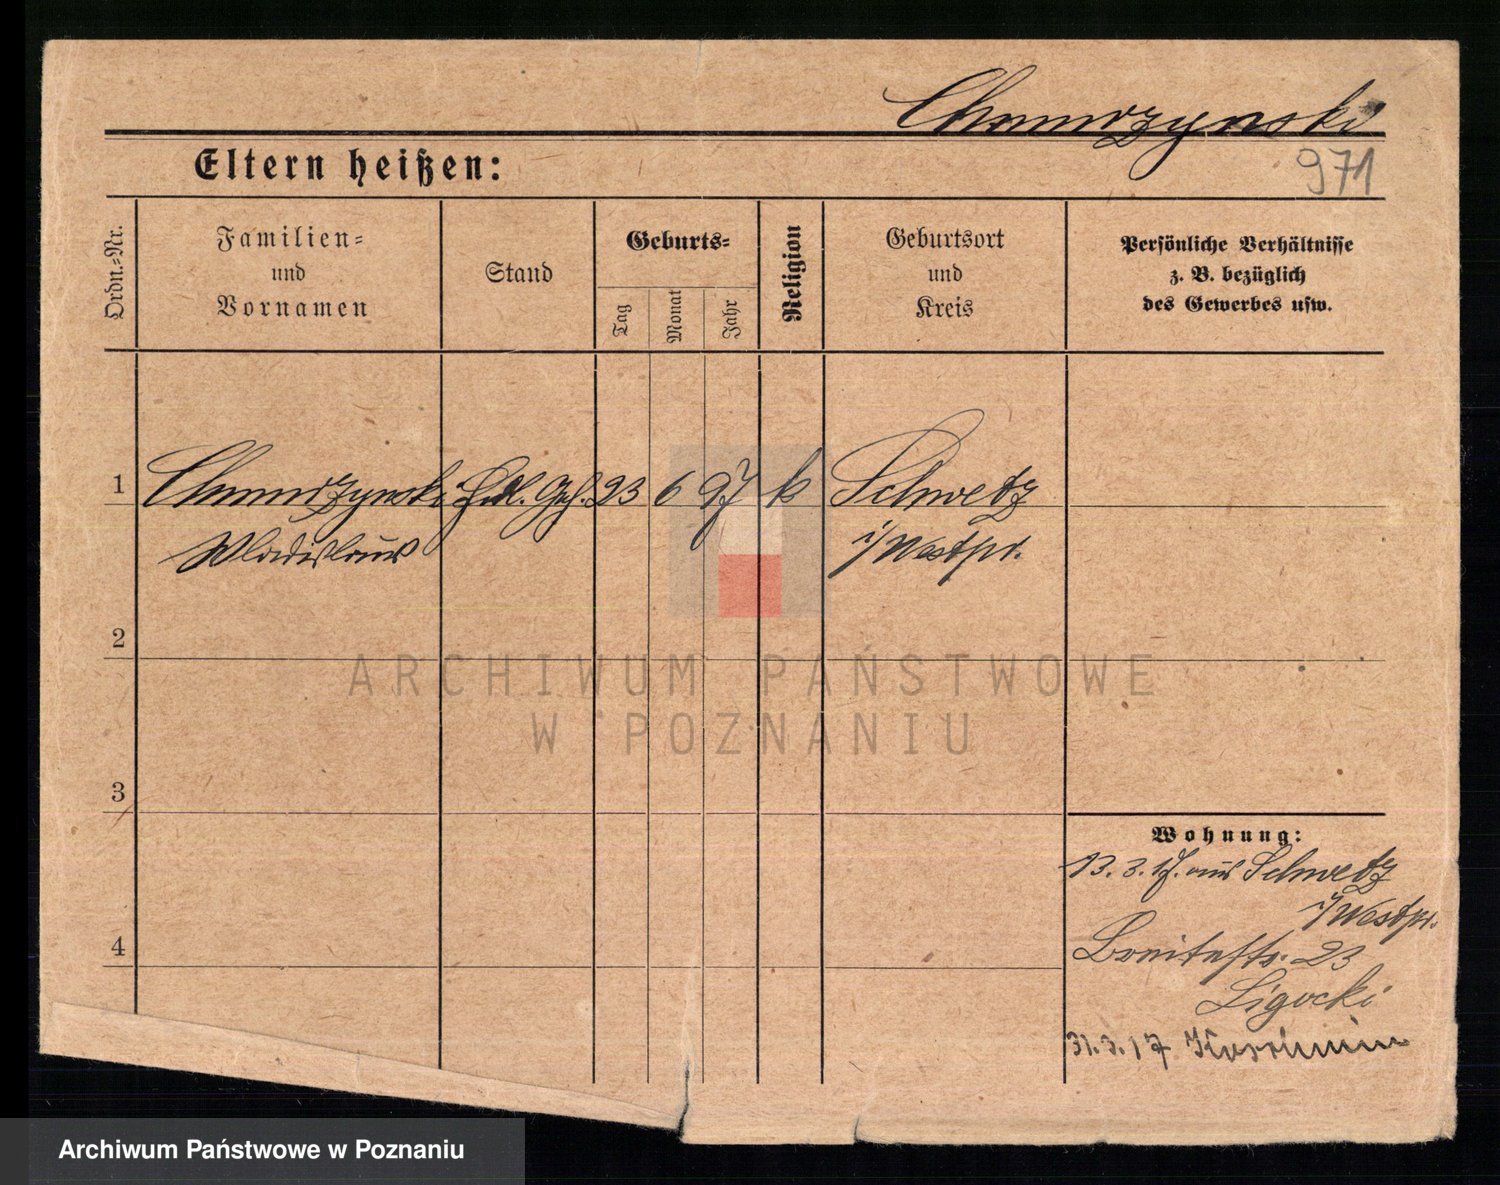 Chmurzynski
971
Eltern heißen:
Ordn.-Nr.
Familien-
und
Vornamen
Stand
Geburts-
Tag
Monat
Jahr
Religion
Geburtsort
und
Kreis
Persönliche Verhältnisse
z. B. bezüglich
des Gewerbes usw.
1 Chmurzynski Hdl. Geh. 23 6 97 k Schwetz
Wladislaus i/Westpr.
2
ARCHIWUM PAŃSTWOWE
W POZNANIU
3
Wohnung:
13. 3. 17. aus Schwetz
i/Westpr.
4
Breitestr. 23
Ligocki
31.3.17
Archiwum Państwowe w Poznaniu